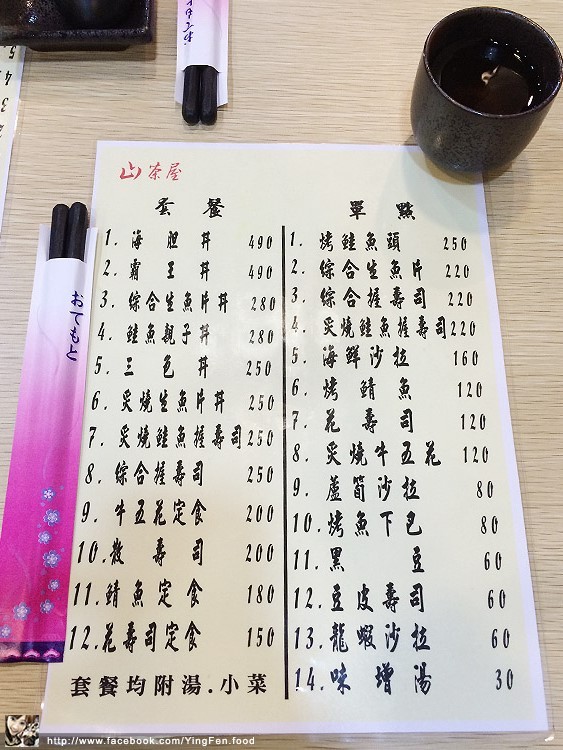 おてもと
山茶屋
套餐
1. 海胆丼 490
2. 霸王丼 490
3. 綜合生魚片丼 280
4. 鮭魚親子丼 280
5. 三色丼 250
6. 炙燒生魚片丼 250
7. 炙燒鮭魚握壽司 250
8. 綜合握壽司 250
9. 牛五花定食 200
10. 散壽司 200
11. 鯖魚定食 180
12. 花壽司定食 150
套餐均附湯.小菜
單點
1. 烤鮭魚頭 250
2. 綜合生魚片 220
3. 綜合握壽司 220
4. 炙燒鮭魚握壽司 220
5. 海鮮沙拉 160
6. 烤鯖魚 120
7. 花壽司 120
8. 炙燒牛五花 120
9. 蘆筍沙拉 80
10. 烤魚下巴 80
11. 黑豆 60
12. 豆皮壽司 60
13. 龍蝦沙拉 60
14. 味增湯 30
おてもと
http://www.facebook.com/YingFen.food